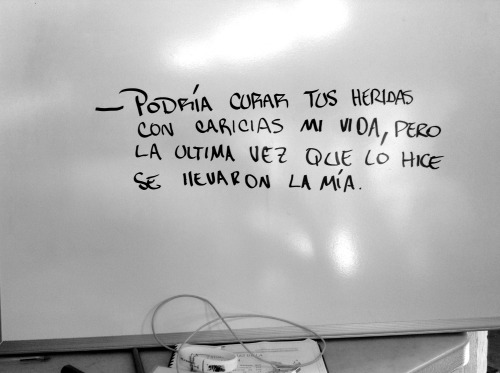 — PODRÍA CURAR TUS HERIDAS
CON CARICIAS MI VIDA, PERO
LA ULTIMA VEZ QUE LO HICE
SE LLEVARON LA MÍA.